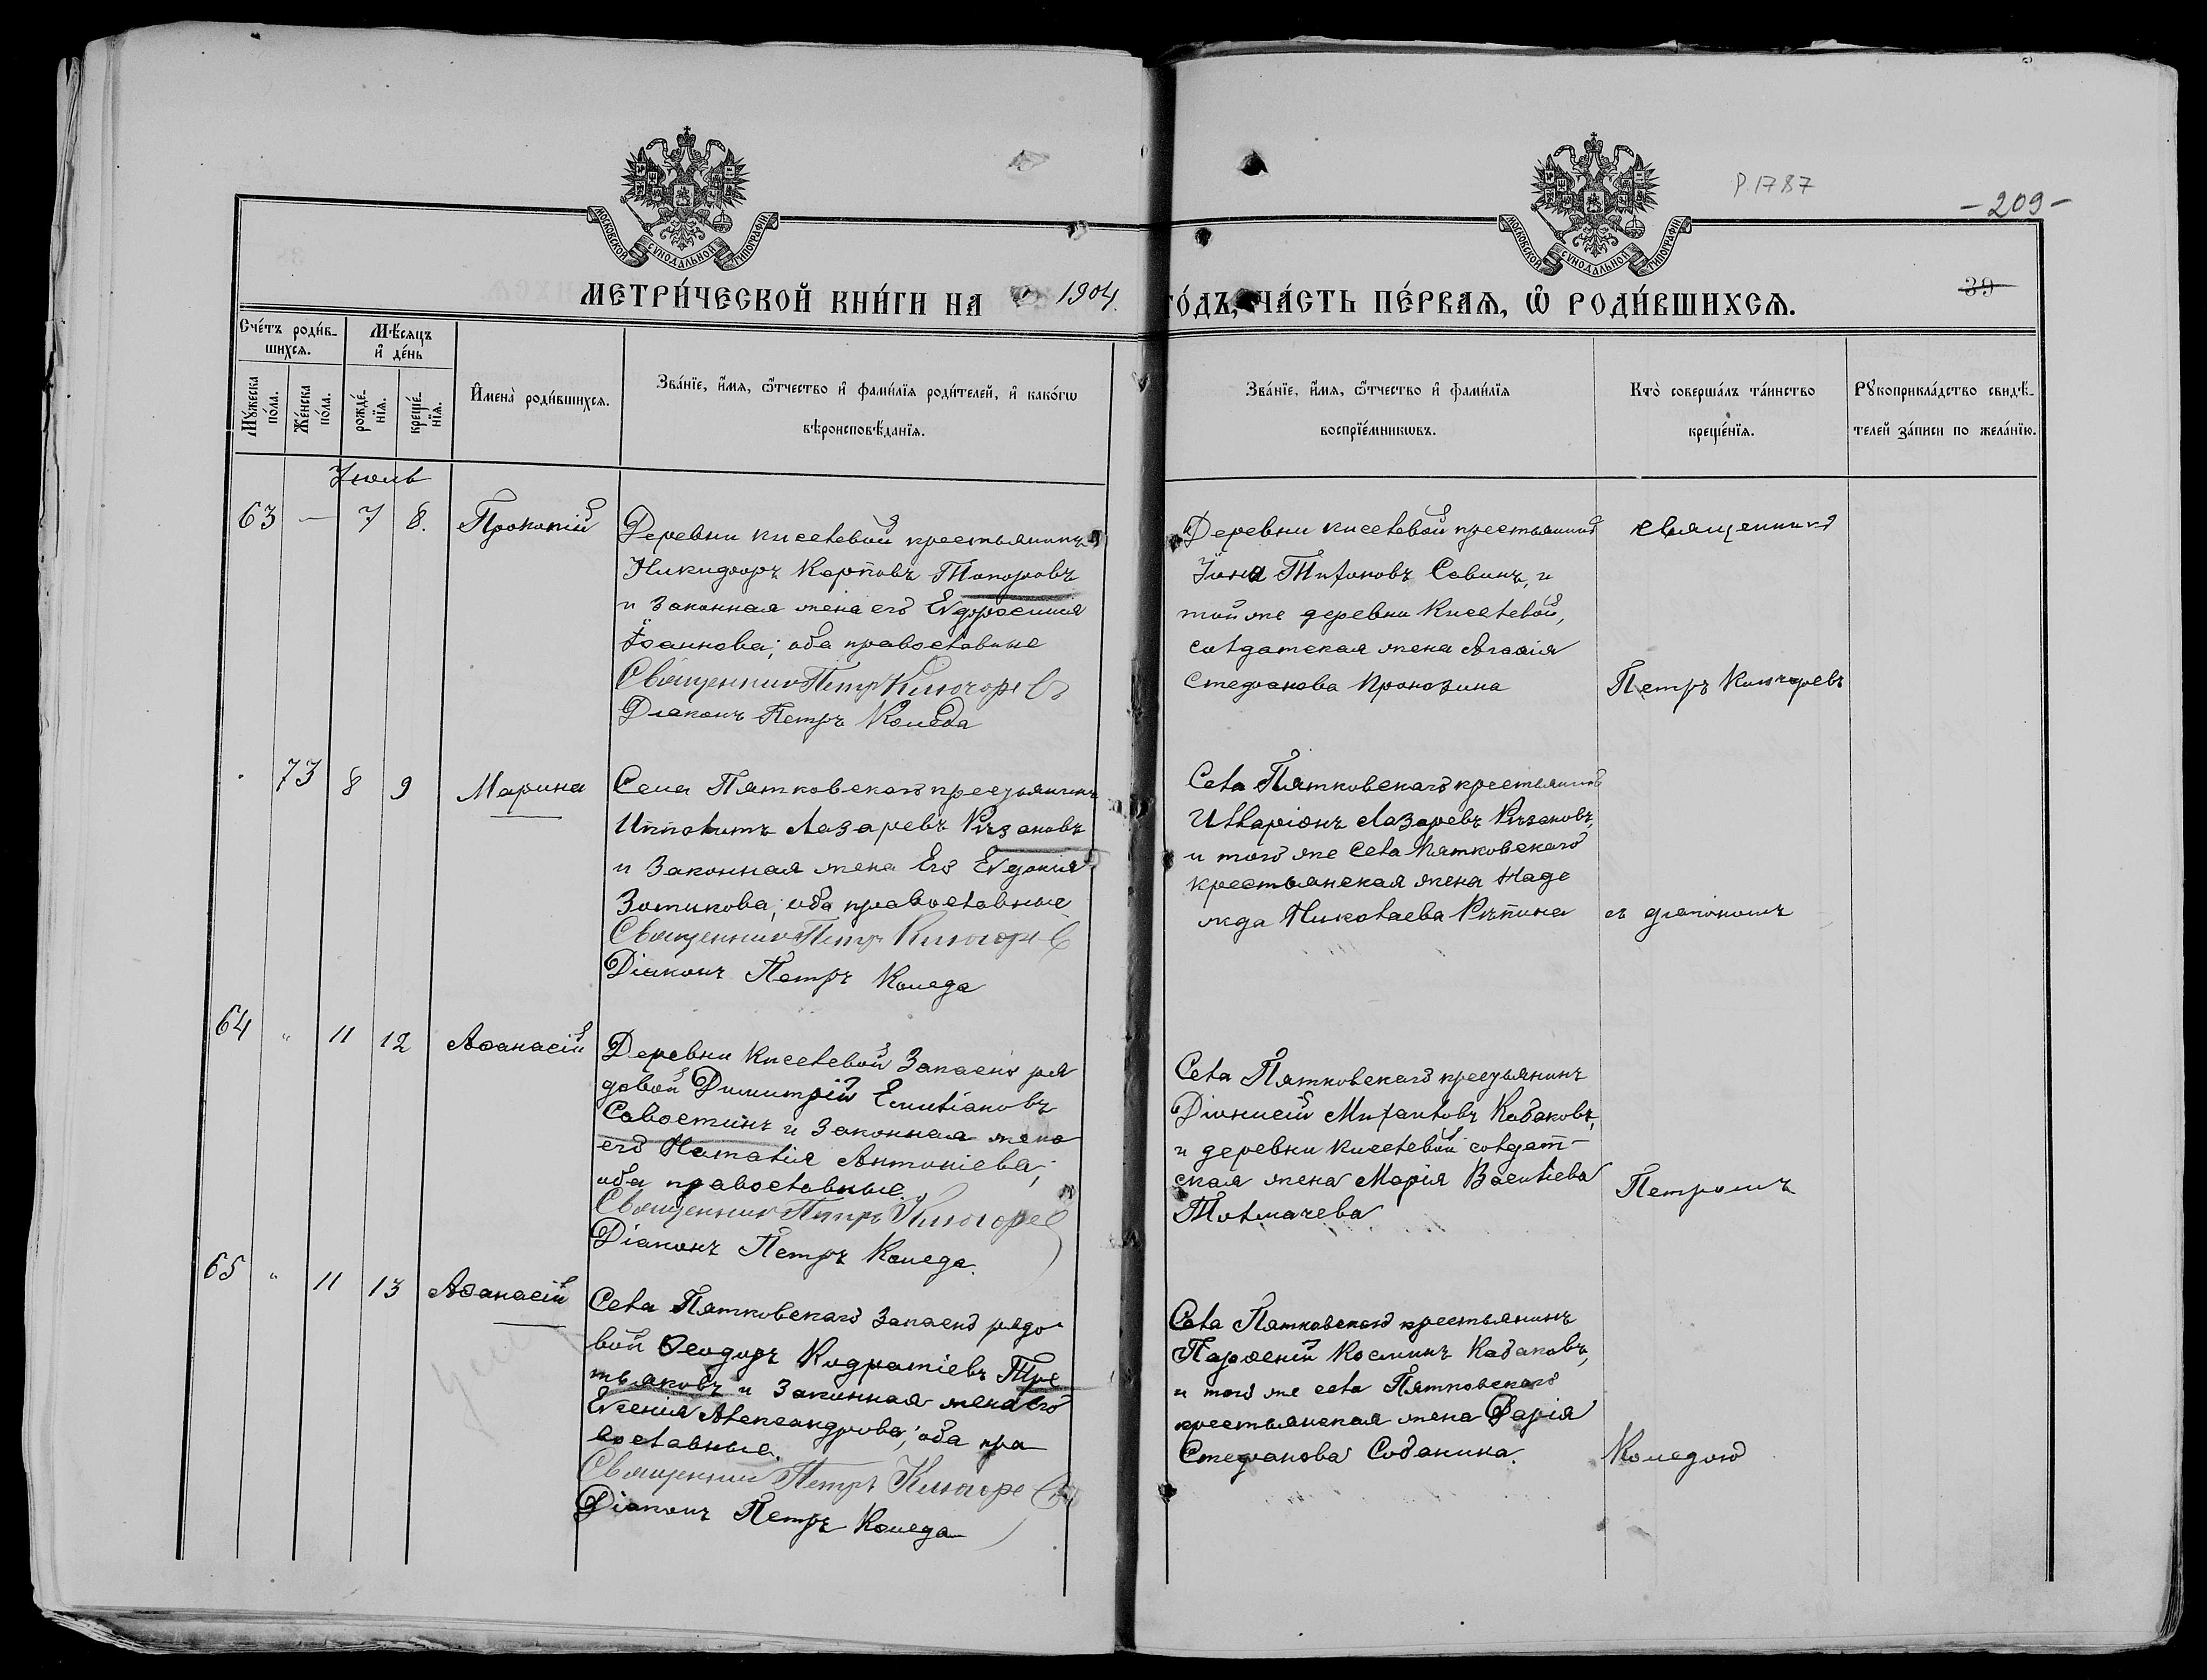 Р.1787
- 209 -
39
МОСКОВСКОЙ СѴНОДАЛЬНОЙ ТИПОГРАФІИ
МОСКОВСКОЙ СѴНОДАЛЬНОЙ ТИПОГРАФІИ
МЕТРИ́ЧЕСКОЙ КНИ́ГИ НА 1904. ГО́ДЪ, ЧА́СТЬ ПЕ́РВАѦ, Ѽ РОДИ́ВШИХСѦ.
Сче́тъ роди́в-
шихсѧ.
Мѣ́сяцъ
и҆ де́нь
Мꙋ́жеска
по́ла.
Же́нска
по́ла.
рожде́-
нїѧ.
креще́-
нїѧ.
И҆мена̀ роди́вшихсѧ.
Зва́нїе, и҆́мѧ, ѻ҆́тчество и҆ фами́лїѧ роди́телей, и҆ како́гѡ
вѣроисповѣ́данїѧ.
Зва́нїе, и҆́мѧ, ѻ҆́тчество и҆ фами́лїѧ
воспрїе́мникѡвъ.
Кто̀ соверша́лъ та́инство
креще́нїѧ.
Рꙋкоприкла́дство свидѣ́-
телей за́писи по жела́нїю.
Июль
63 — 7 8. Прокопій
Деревни Киселевой крестьянинъ
Никифоръ Карповъ Топоровъ
и законная жена его Евфросинія
Іоаннова; оба православные
Священникъ Петръ Ключаревъ
Діаконъ Петръ Коледа
Деревни Киселевой крестьянинъ
Іона Тихоновъ Савинъ, и
той же деревни Киселевой,
солдатская жена Агафія
Стефанова Пронозина
священникъ
Петръ Ключаревъ
73 8 9 Марина
Села Пятковскаго крестьянинъ
Ипполитъ Лазаревъ Рѣзановъ
и законная жена его Евдокія
Зотикова; оба православные
Священникъ Петръ Ключаревъ
Діаконъ Петръ Коледа
Села Пятковскаго крестьянинъ
Илларіонъ Лазаревъ Рѣзановъ,
и того же села Пятковскаго
крестьянская жена Наде
жда Николаева Рѣпина
съ діакономъ
64 " 11 12 Аѳанасій
Деревни Киселевой запасной ря
довой Димитрій Емиліановъ
Савостинъ и законная жена
его Наталія Антоніева;
оба православные.
Священникъ Петръ Ключаревъ
Діаконъ Петръ Коледа.
Села Пятковскаго крестьянинъ
Діонисій Михаиловъ Кабаковъ,
и деревни Киселевой солдат-
ская жена Марія Василіева
Толмачева
Петромъ
65 " 11 13 Аѳанасій
Села Пятковскаго запасной рядо
вой Ѳеодоръ Кодратіевъ Тре
тьяковъ и законная жена его
Евгенія Александрова; оба пра
вославные.
Священникъ Петръ Ключаревъ
Діаконъ Петръ Коледа
Села Пятковскаго крестьянинъ
Парфеній Косминъ Кабаковъ,
и того же села Пятковскаго
крестьянская жена Дарія
Стефанова Собанина.
Коледою